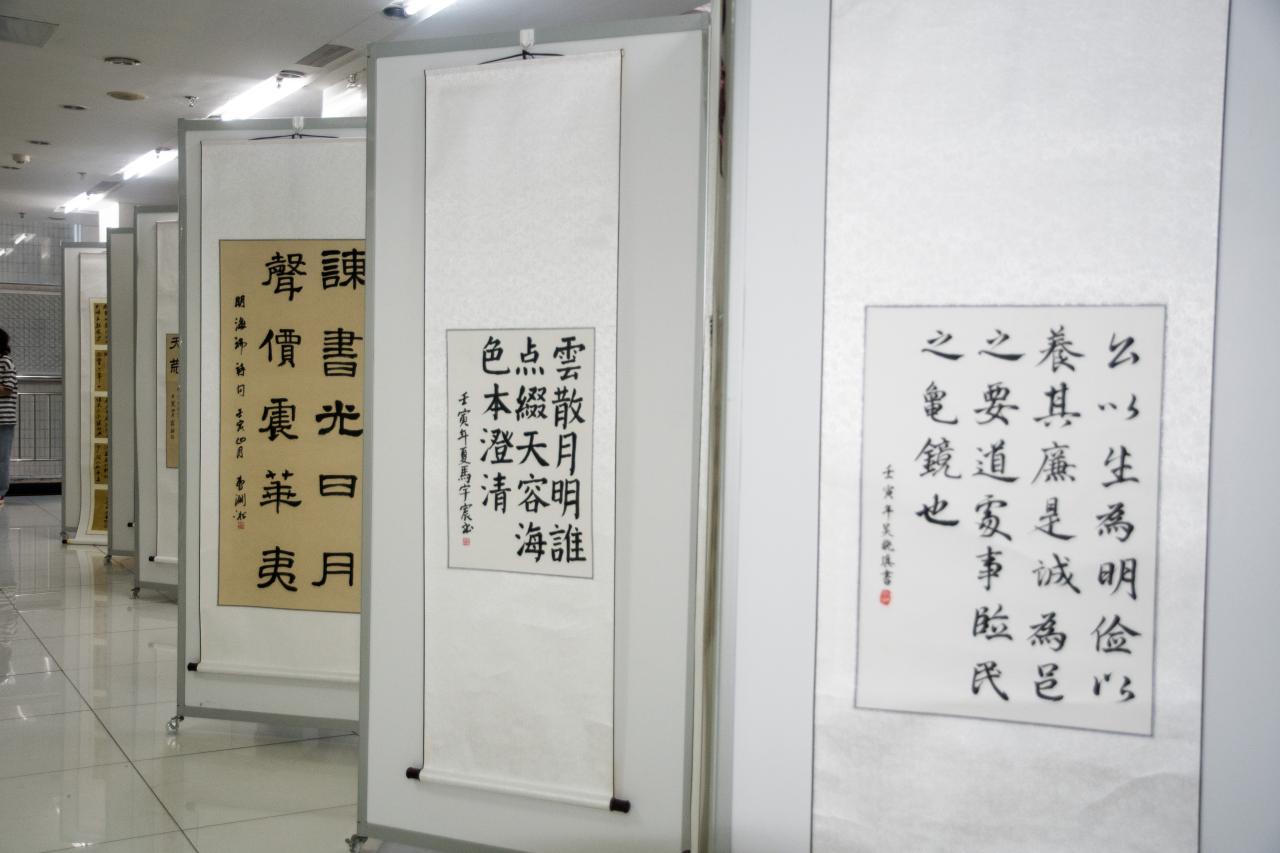 公以生為明俭以
養其廉是诚為邑
之要道處事臨民
之龜鏡也
壬寅年吴
雲散月明誰
点綴天容海
色本澄清
壬寅年夏馬宇宸书
諫書光日月
聲價震華夷
明海瑞詩句 壬寅四月
天荒